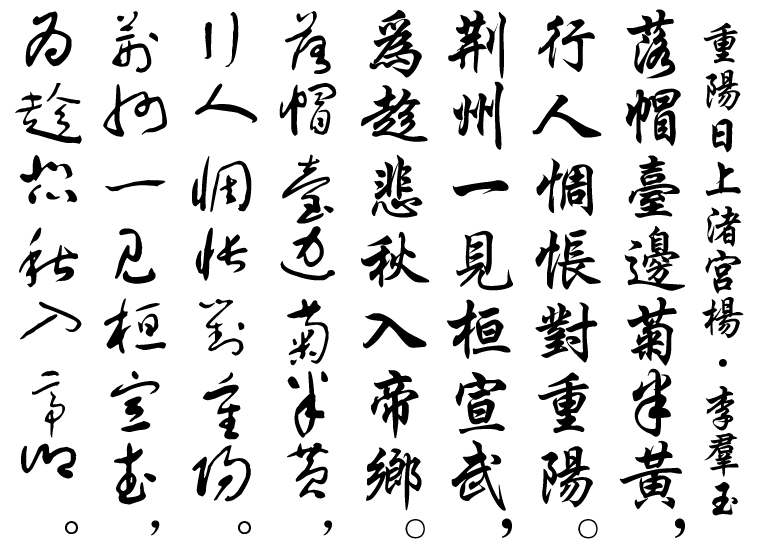 重陽日上渚宮楊·李羣玉
落帽臺邊菊半黃，
行人惆悵對重陽。
荆州一見桓宣武，
爲趁悲秋入帝鄉。
落帽臺边菊半黄，
行人惆悵對重陽。
荆州一見桓宣武，
为趁悲秋入帝鄉。